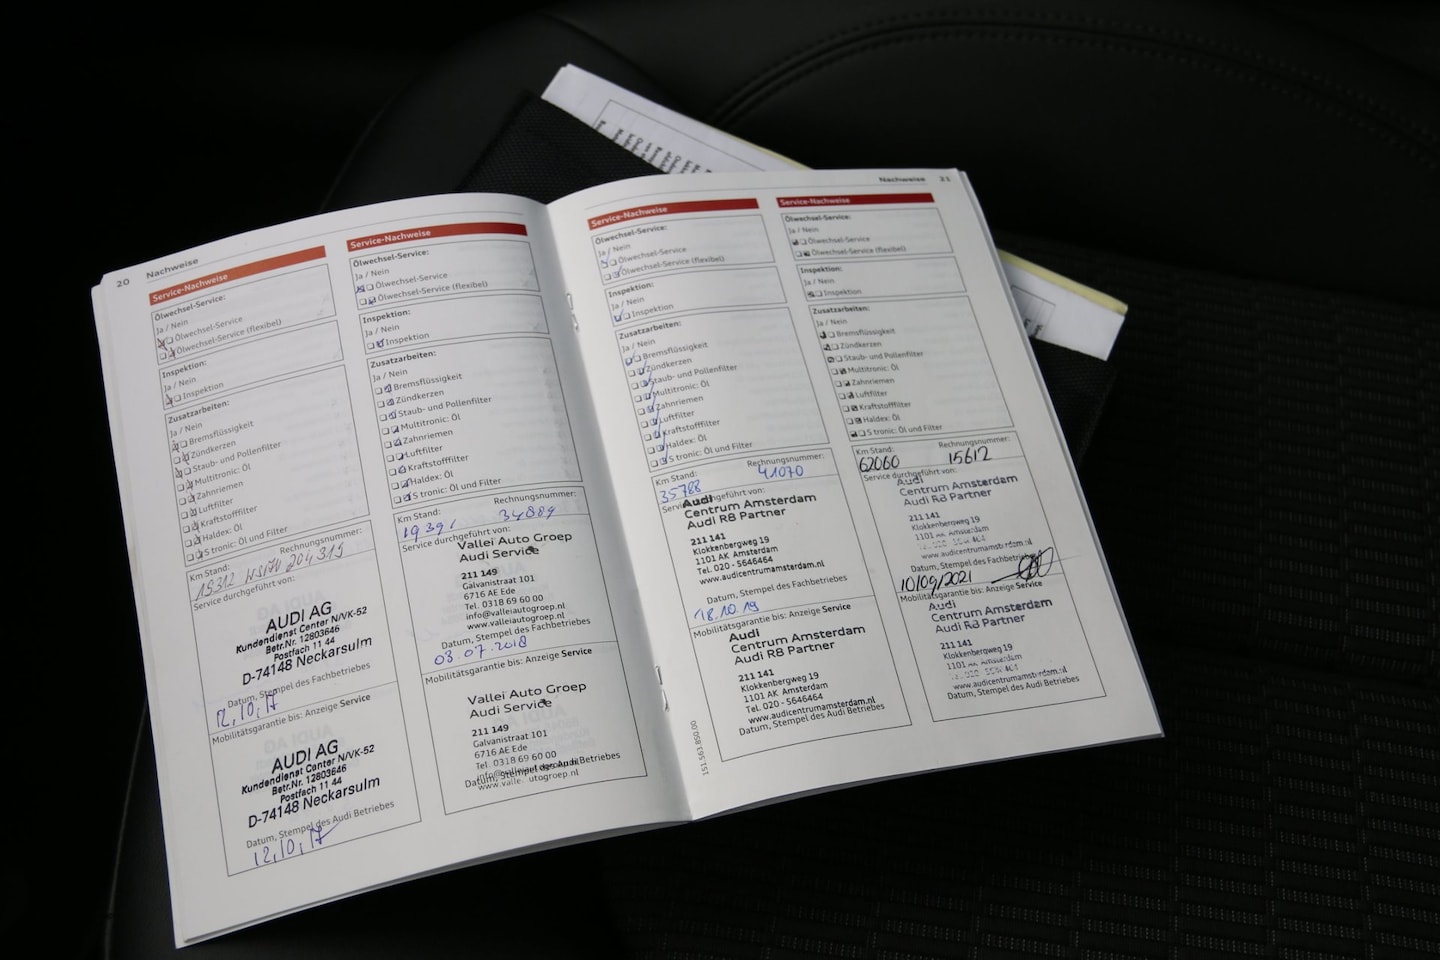 20 Nachweise
Service-Nachweise
Ölwechsel-Service:
Ja / Nein
Ölwechsel-Service
Ölwechsel-Service (flexibel)
Inspektion:
Ja / Nein
Inspektion
Zusatzarbeiten:
Ja / Nein
Bremsflüssigkeit
Zündkerzen
Staub- und Pollenfilter
Multitronic: Öl
Zahnriemen
Luftfilter
Kraftstofffilter
Haldex: Öl
S tronic: Öl und Filter
Km Stand: Rechnungsnummer:
15312 204315
Service durchgeführt von:
AUDI AG
Kundendienst Center N/VK-52
Betr.Nr. 12803646
Postfach 11 44
D-74148 Neckarsulm
Datum, Stempel des Fachbetriebes
12.10.17
Mobilitätsgarantie bis: Anzeige Service
AUDI AG
Kundendienst Center N/VK-52
Betr.Nr. 12803646
Postfach 11 44
D-74148 Neckarsulm
Datum, Stempel des Audi Betriebes
12.10.17
Service-Nachweise
Ölwechsel-Service:
Ja / Nein
Ölwechsel-Service
Ölwechsel-Service (flexibel)
Inspektion:
Ja / Nein
Inspektion
Zusatzarbeiten:
Ja / Nein
Bremsflüssigkeit
Zündkerzen
Staub- und Pollenfilter
Multitronic: Öl
Zahnriemen
Luftfilter
Kraftstofffilter
Haldex: Öl
S tronic: Öl und Filter
Km Stand: Rechnungsnummer:
34889
Service durchgeführt von:
Vallei Auto Groep
Audi Service
211 149
Galvanistraat 101
6716 AE Ede
Tel. 0318 69 60 00
info@valleiautogroep.nl
www.valleiautogroep.nl
Datum, Stempel des Fachbetriebes
03.07.2018
Mobilitätsgarantie bis: Anzeige Service
Vallei Auto Groep
Audi Service
211 149
Galvanistraat 101
6716 AE Ede
Tel. 0318 69 60 00
Datum, Stempel des Audi Betriebes
Nachweise 21
Service-Nachweise
Ölwechsel-Service:
Ja / Nein
Ölwechsel-Service
Ölwechsel-Service (flexibel)
Inspektion:
Ja / Nein
Inspektion
Zusatzarbeiten:
Ja / Nein
Bremsflüssigkeit
Zündkerzen
Staub- und Pollenfilter
Multitronic: Öl
Zahnriemen
Luftfilter
Kraftstofffilter
Haldex: Öl
S tronic: Öl und Filter
Km Stand: Rechnungsnummer:
35788 41070
Service durchgeführt von:
Audi
Centrum Amsterdam
Audi R8 Partner
211 141
Klokkenbergweg 19
1101 AK Amsterdam
Tel. 020 - 5646464
www.audicentrumamsterdam.nl
Datum, Stempel des Fachbetriebes
18.10.19
Mobilitätsgarantie bis: Anzeige Service
Audi
Centrum Amsterdam
Audi R8 Partner
211 141
Klokkenbergweg 19
1101 AK Amsterdam
Tel. 020 - 5646464
www.audicentrumamsterdam.nl
Datum, Stempel des Audi Betriebes
151.563.850.00
Service-Nachweise
Ölwechsel-Service:
Ja / Nein
Ölwechsel-Service
Ölwechsel-Service (flexibel)
Inspektion:
Ja / Nein
Inspektion
Zusatzarbeiten:
Ja / Nein
Bremsflüssigkeit
Zündkerzen
Staub- und Pollenfilter
Multitronic: Öl
Zahnriemen
Luftfilter
Kraftstofffilter
Haldex: Öl
S tronic: Öl und Filter
Km Stand: Rechnungsnummer:
62060 15612
Service durchgeführt von:
Audi
Centrum Amsterdam
Audi R8 Partner
211 141
Klokkenbergweg 19
1101 AK Amsterdam
www.audicentrumamsterdam.nl
Datum, Stempel des Fachbetriebes
10/09/2021
Mobilitätsgarantie bis: Anzeige Service
Audi
Centrum Amsterdam
Audi R8 Partner
211 141
Klokkenbergweg 19
1101 AK Amsterdam
www.audicentrumamsterdam.nl
Datum, Stempel des Audi Betriebes